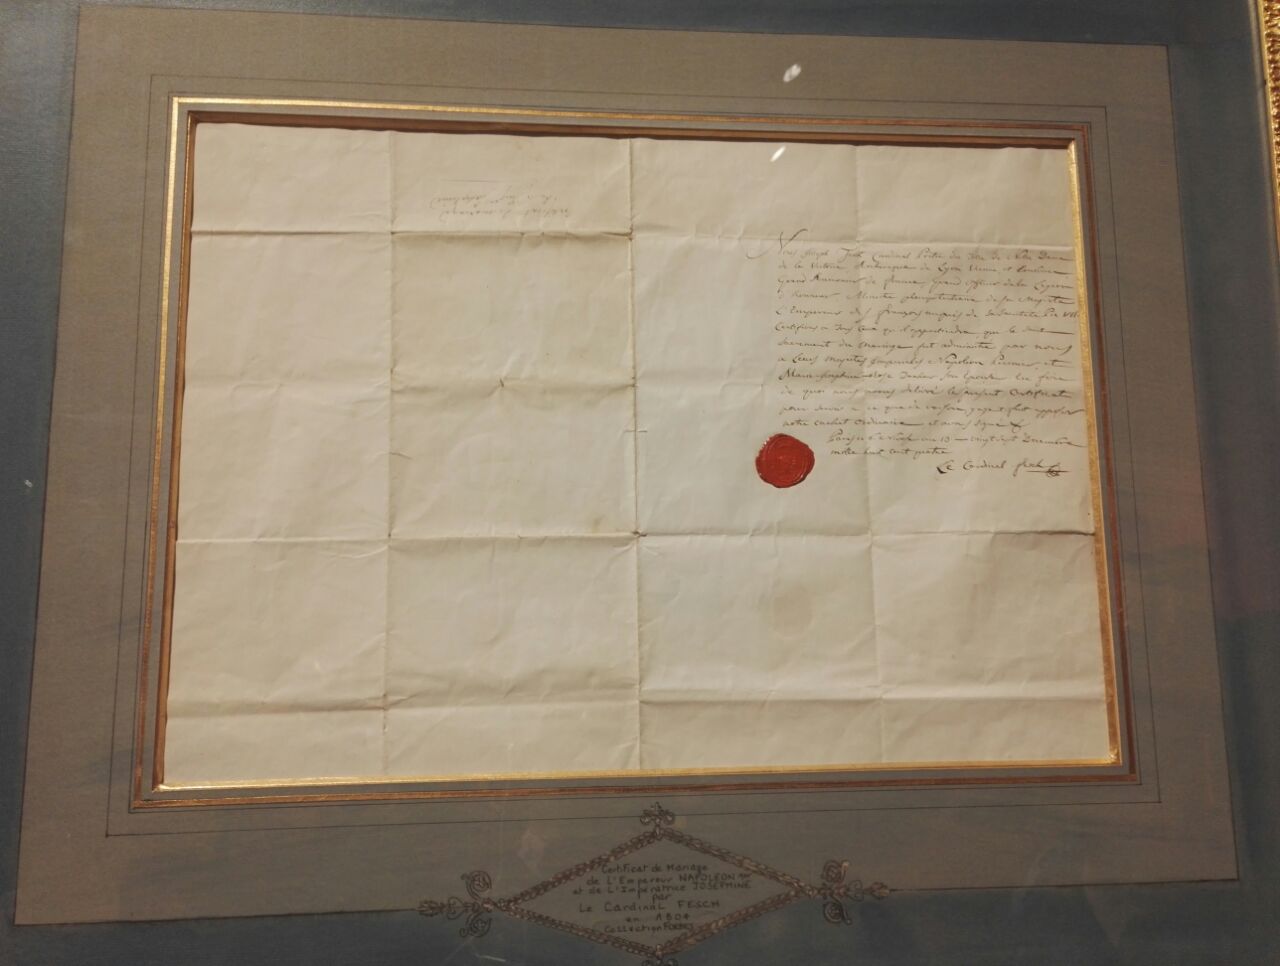 Nous Joseph Fesch Cardinal Prêtre du titre de Notre Dame
de la Victoire Archevêque de Lyon Vienne et Embrun
Grand Aumonier de France, Grand Officier de la Légion
d'honneur, Ministre plénipotentiaire de sa Majesté
L'Empereur des françois auprès de sa Sainteté Pie VII.
Certifions à tous ceux qu'il appartiendra, que le
sacrement du Mariage fut administré par nous
a Leurs Majestés Impériales Napoléon Premier et
Marie Joseph Rose son épouse
de quoi nous avons délivré le présent Certificat
pour servir a ce que de
notre cachet ordinaire et avons signé
Paris le 6 an 13 vingt sept Decembre
mille huit cent quatre
Le Cardinal Fesch
Certificat de Mariage
de L'Empereur NAPOLEON 1er
et de L'Impératrice JOSEPHINE
par
Le Cardinal FESCH
en 1804
Collection FORBES